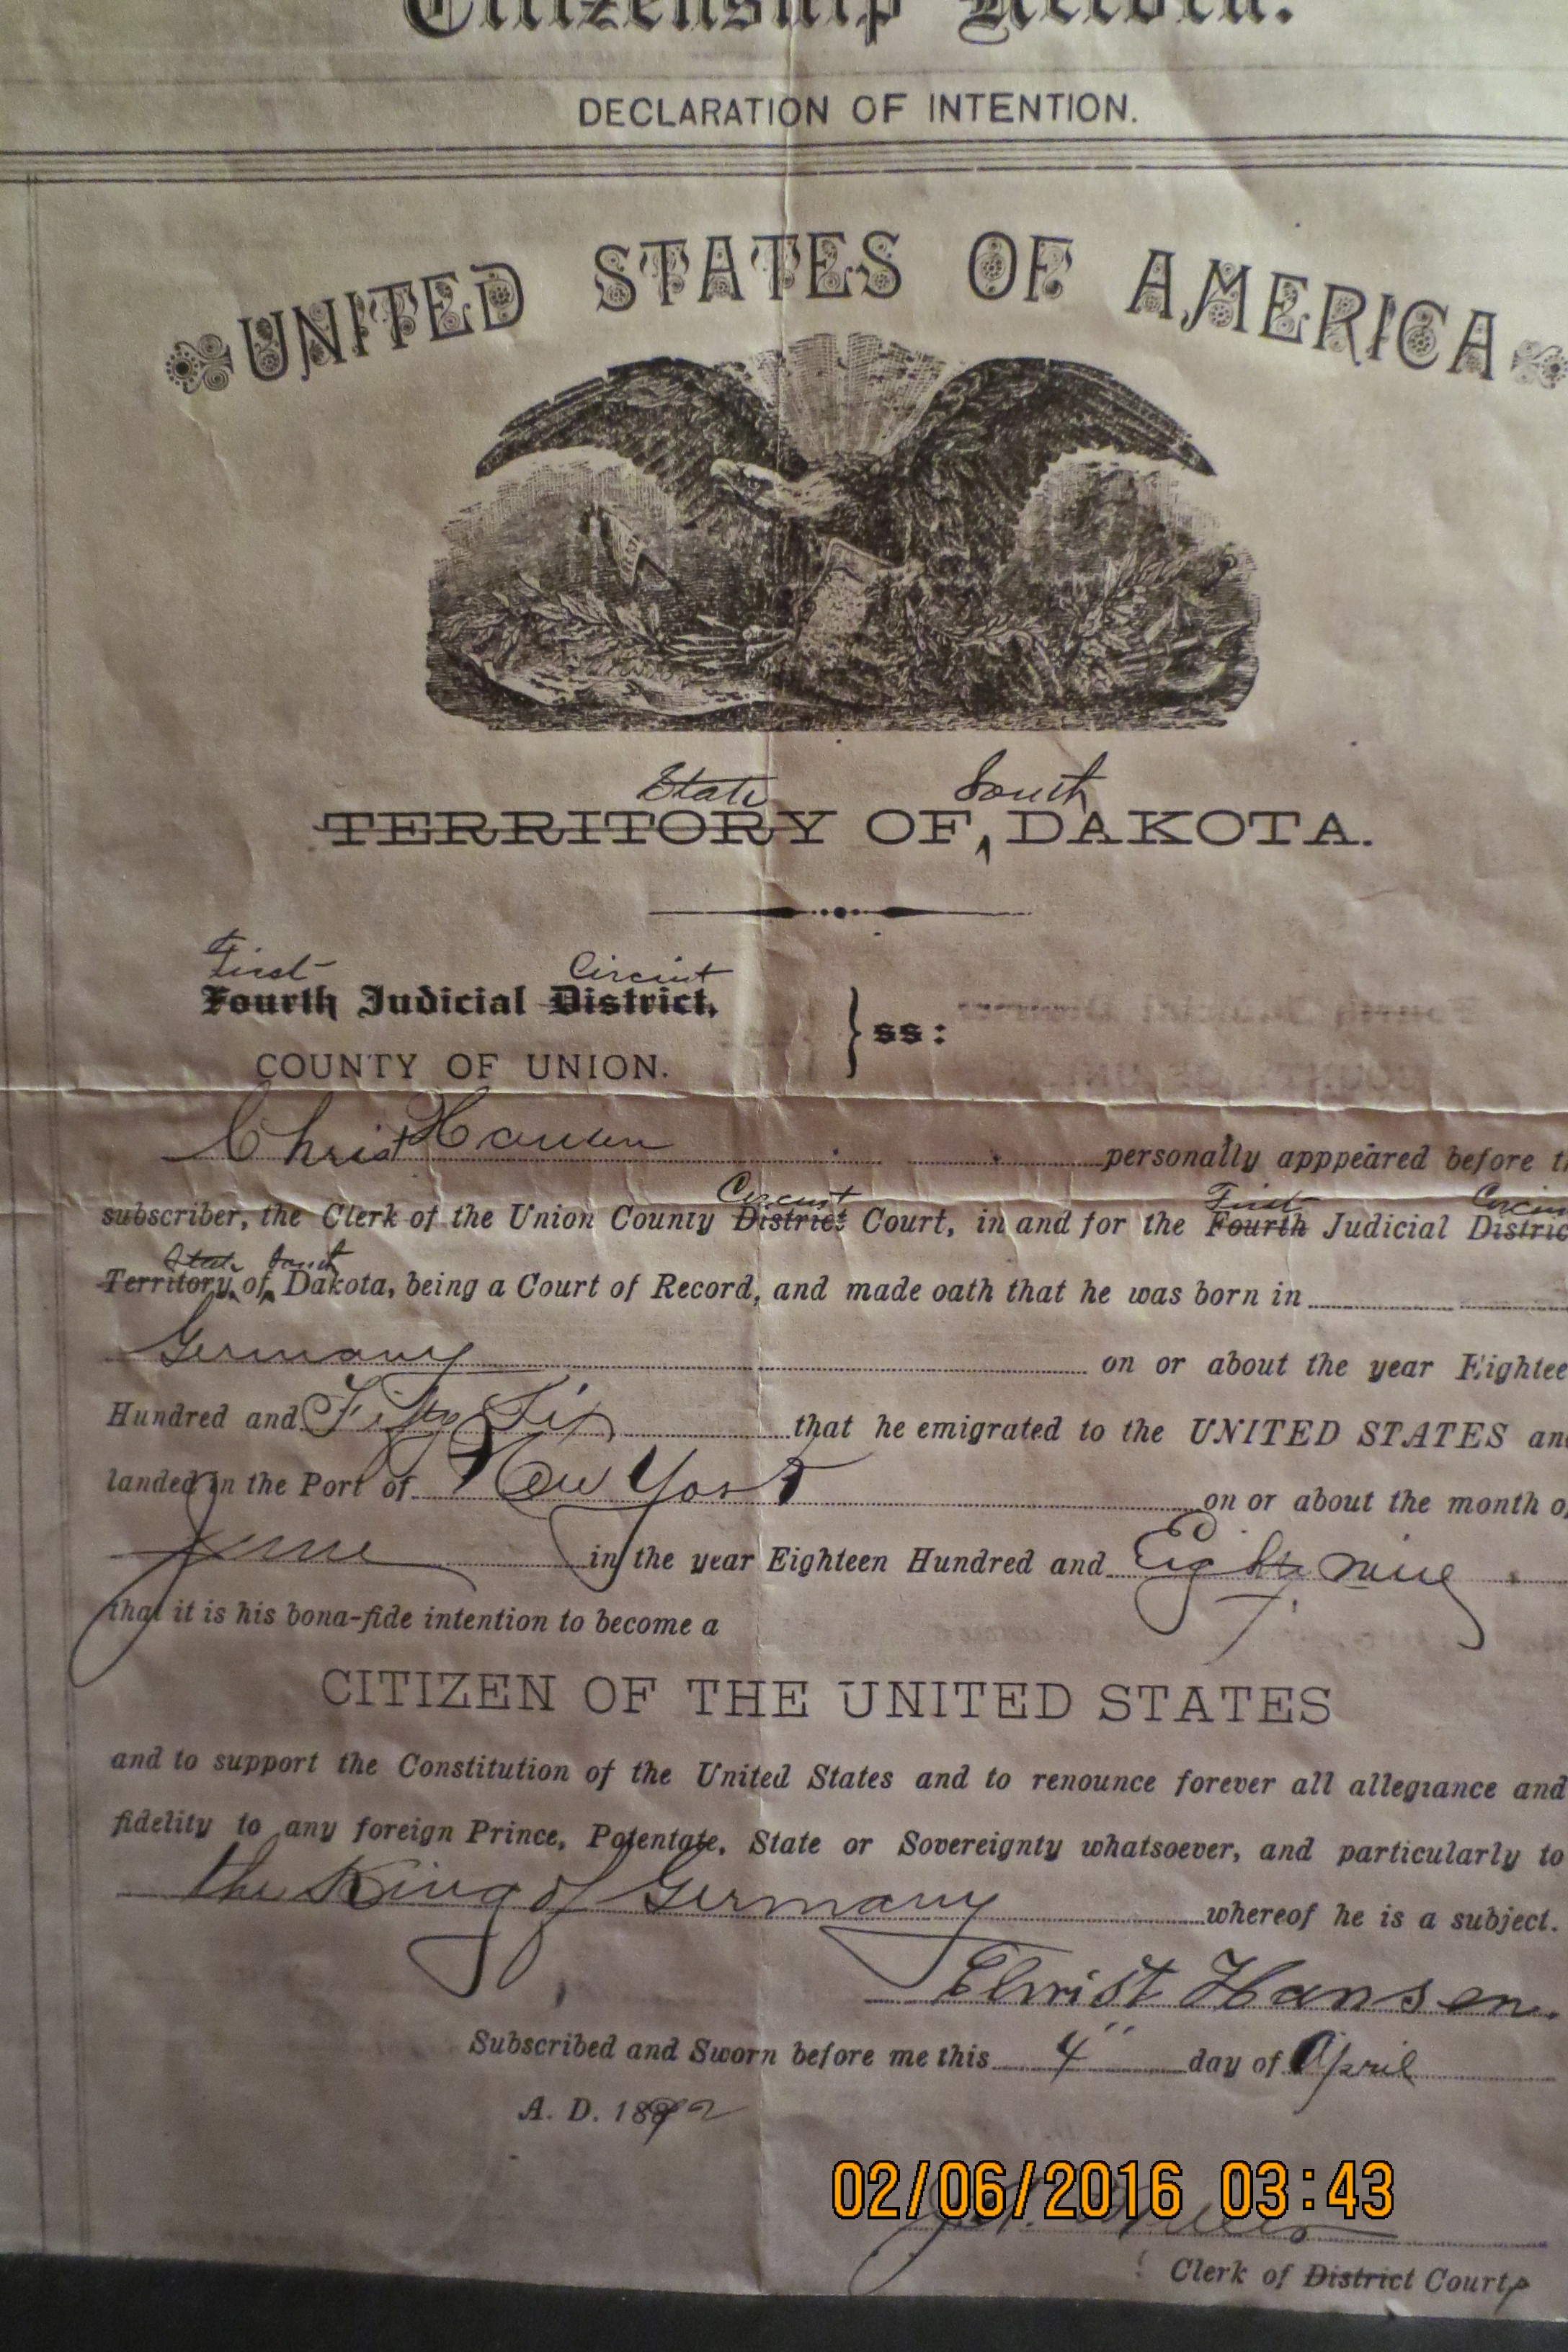 Citizenship Record.
DECLARATION OF INTENTION.
UNITED STATES OF AMERICA
State South
TERRITORY OF DAKOTA.
First Circuit
Fourth Judicial District.
ss:
COUNTY OF UNION.
Christ Hansen personally apppeared before
Circuit First
subscriber, the Clerk of the Union County District Court, in and for the Fourth Judicial
State South
Territory of Dakota, being a Court of Record, and made oath that he was born in
Germany on or about the year
Hundred and Fifty Six that he emigrated to the UNITED STATES
landed in the Port of New York on or about the month
June in the year Eighteen Hundred and Eighty nine
that it is his bona-fide intention to become a
CITIZEN OF THE UNITED STATES
and to support the Constitution of the United States and to renounce forever all allegiance and
fidelity to any foreign Prince, Potentate, State or Sovereignty whatsoever, and particularly to
the King of Germany whereof he is a subject.
Christ Hansen.
Subscribed and Sworn before me this 4" day of April
A. D. 1892
02/06/2016 03:43
Clerk of District Court